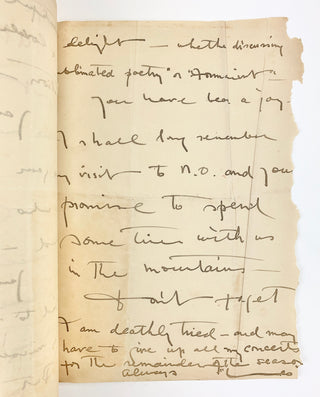 delight — whether discussing
sublimated poetry" or "
You have been a joy.
I shall long remember
my visit to N.O. and you
promise to spend
some time with us
in the mountains —
Don't forget
I am deathly tired — and may
have to give up all my concerts
for the remainder of the season
always